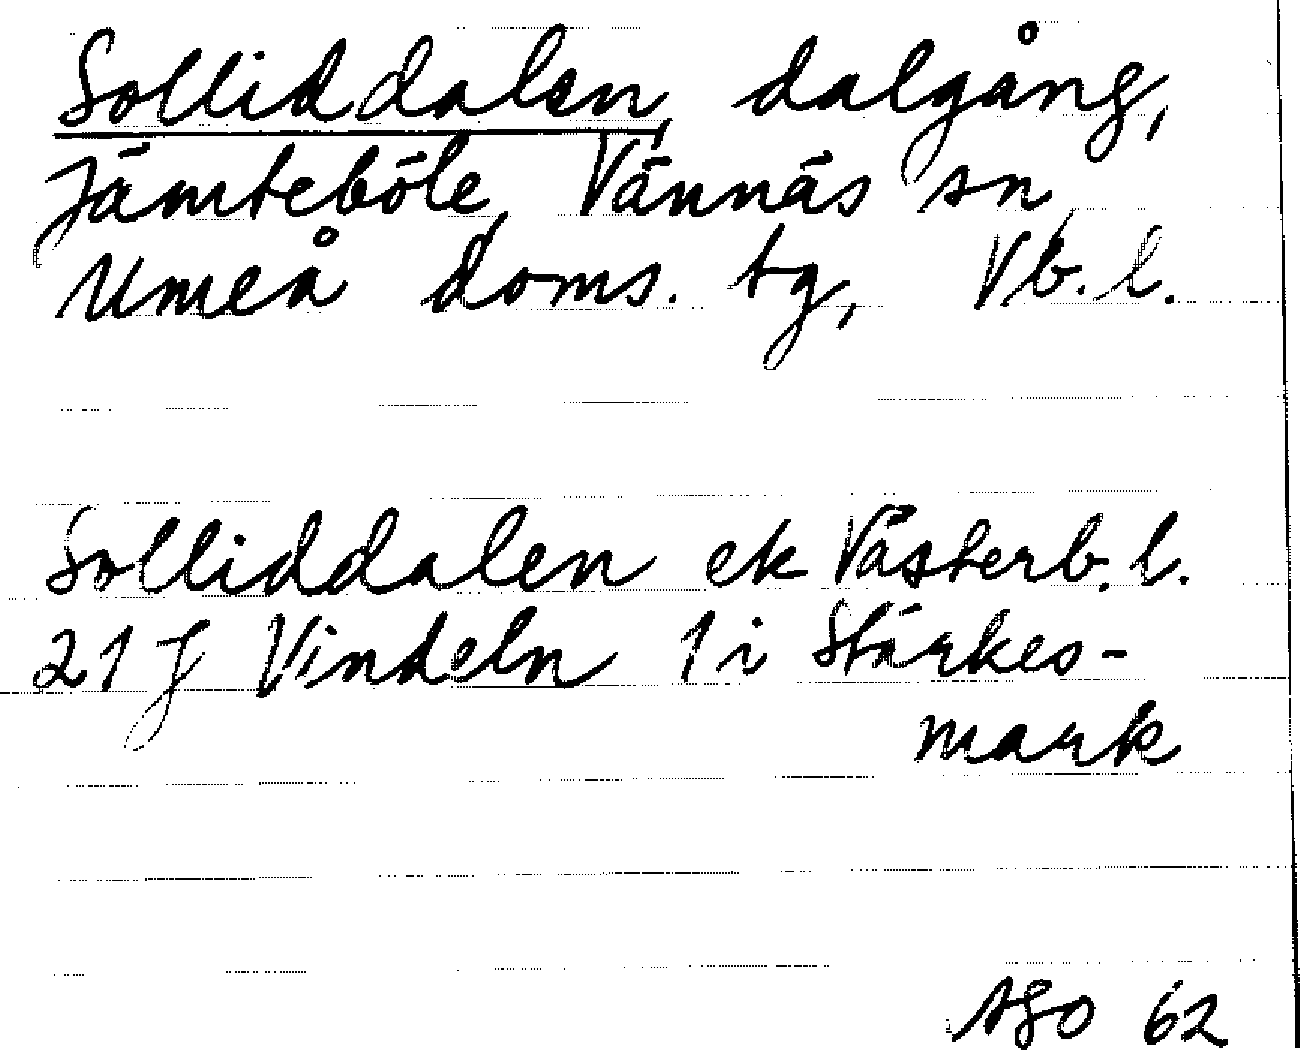 Solliddalen, dalgång,
Jämteböle, Vännäs sn
Umeå doms. tg, Vb. l.
Solliddalen ek Västerb. l.
21 J Vindeln 1 i Stärkes-
mark
SGO 62